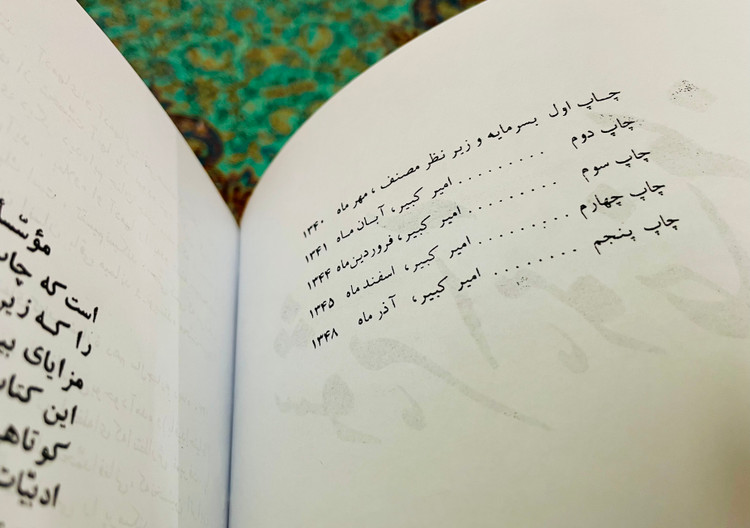 چاپ اول بسرمایه و زیر نظر مصنف، مهرماه ۱۳۴۰
چاپ دوم . . . . . . . . . امیر کبیر، آبان ماه ۱۳۴۱
چاپ سوم . . . . . . . . . امیر کبیر، فروردین‌ماه ۱۳۴۴
چاپ چهارم . . . . . . . . . امیر کبیر، اسفندماه ۱۳۴۵
چاپ پنجم . . . . . . . . امیر کبیر، آذر ماه ۱۳۴۸
است که
را که زیر
مزایای
این کتاب
ادبیّات